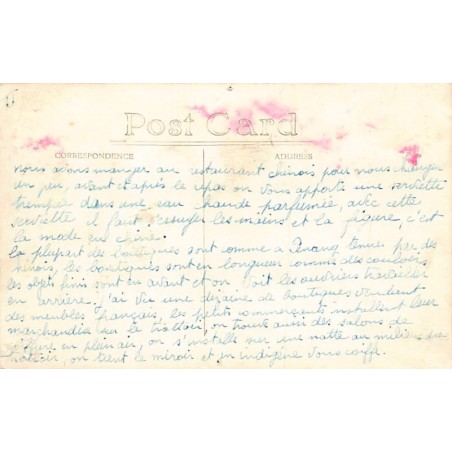 Post Card
CORRESPONDENCE
ADDRESS
nous avons manger au restaurant chinois pour nous changer
un peu, avant et après le repas on vous apporte une serviette
trempée dans une eau chaude parfumée, avec cette
serviette il faut s'essuyer les mains et la figure, c'est
la mode en chine.
La plupart des boutiques sont comme a Penang tenues par des
chinois, les boutiques sont en longueur comme des couloirs,
les objets finis sont en avant et on voit les ouvriers travailler
en arrière. J'ai vu une dizaine de boutiques vendant
des meubles français, les petits commerçants installent leur
marchandise sur le trottoir, on trouve aussi des salons de
coiffure en plein air, on s'installe sur une natte au milieu du
trottoir, on tient le miroir et un indigène vous coiffe.